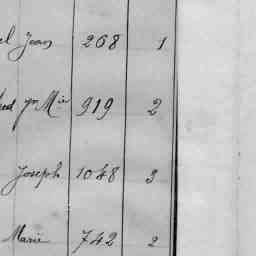 el Jean 268 1
ed Jn Mie 919 2
Joseph 1048 3
Marie 742 2